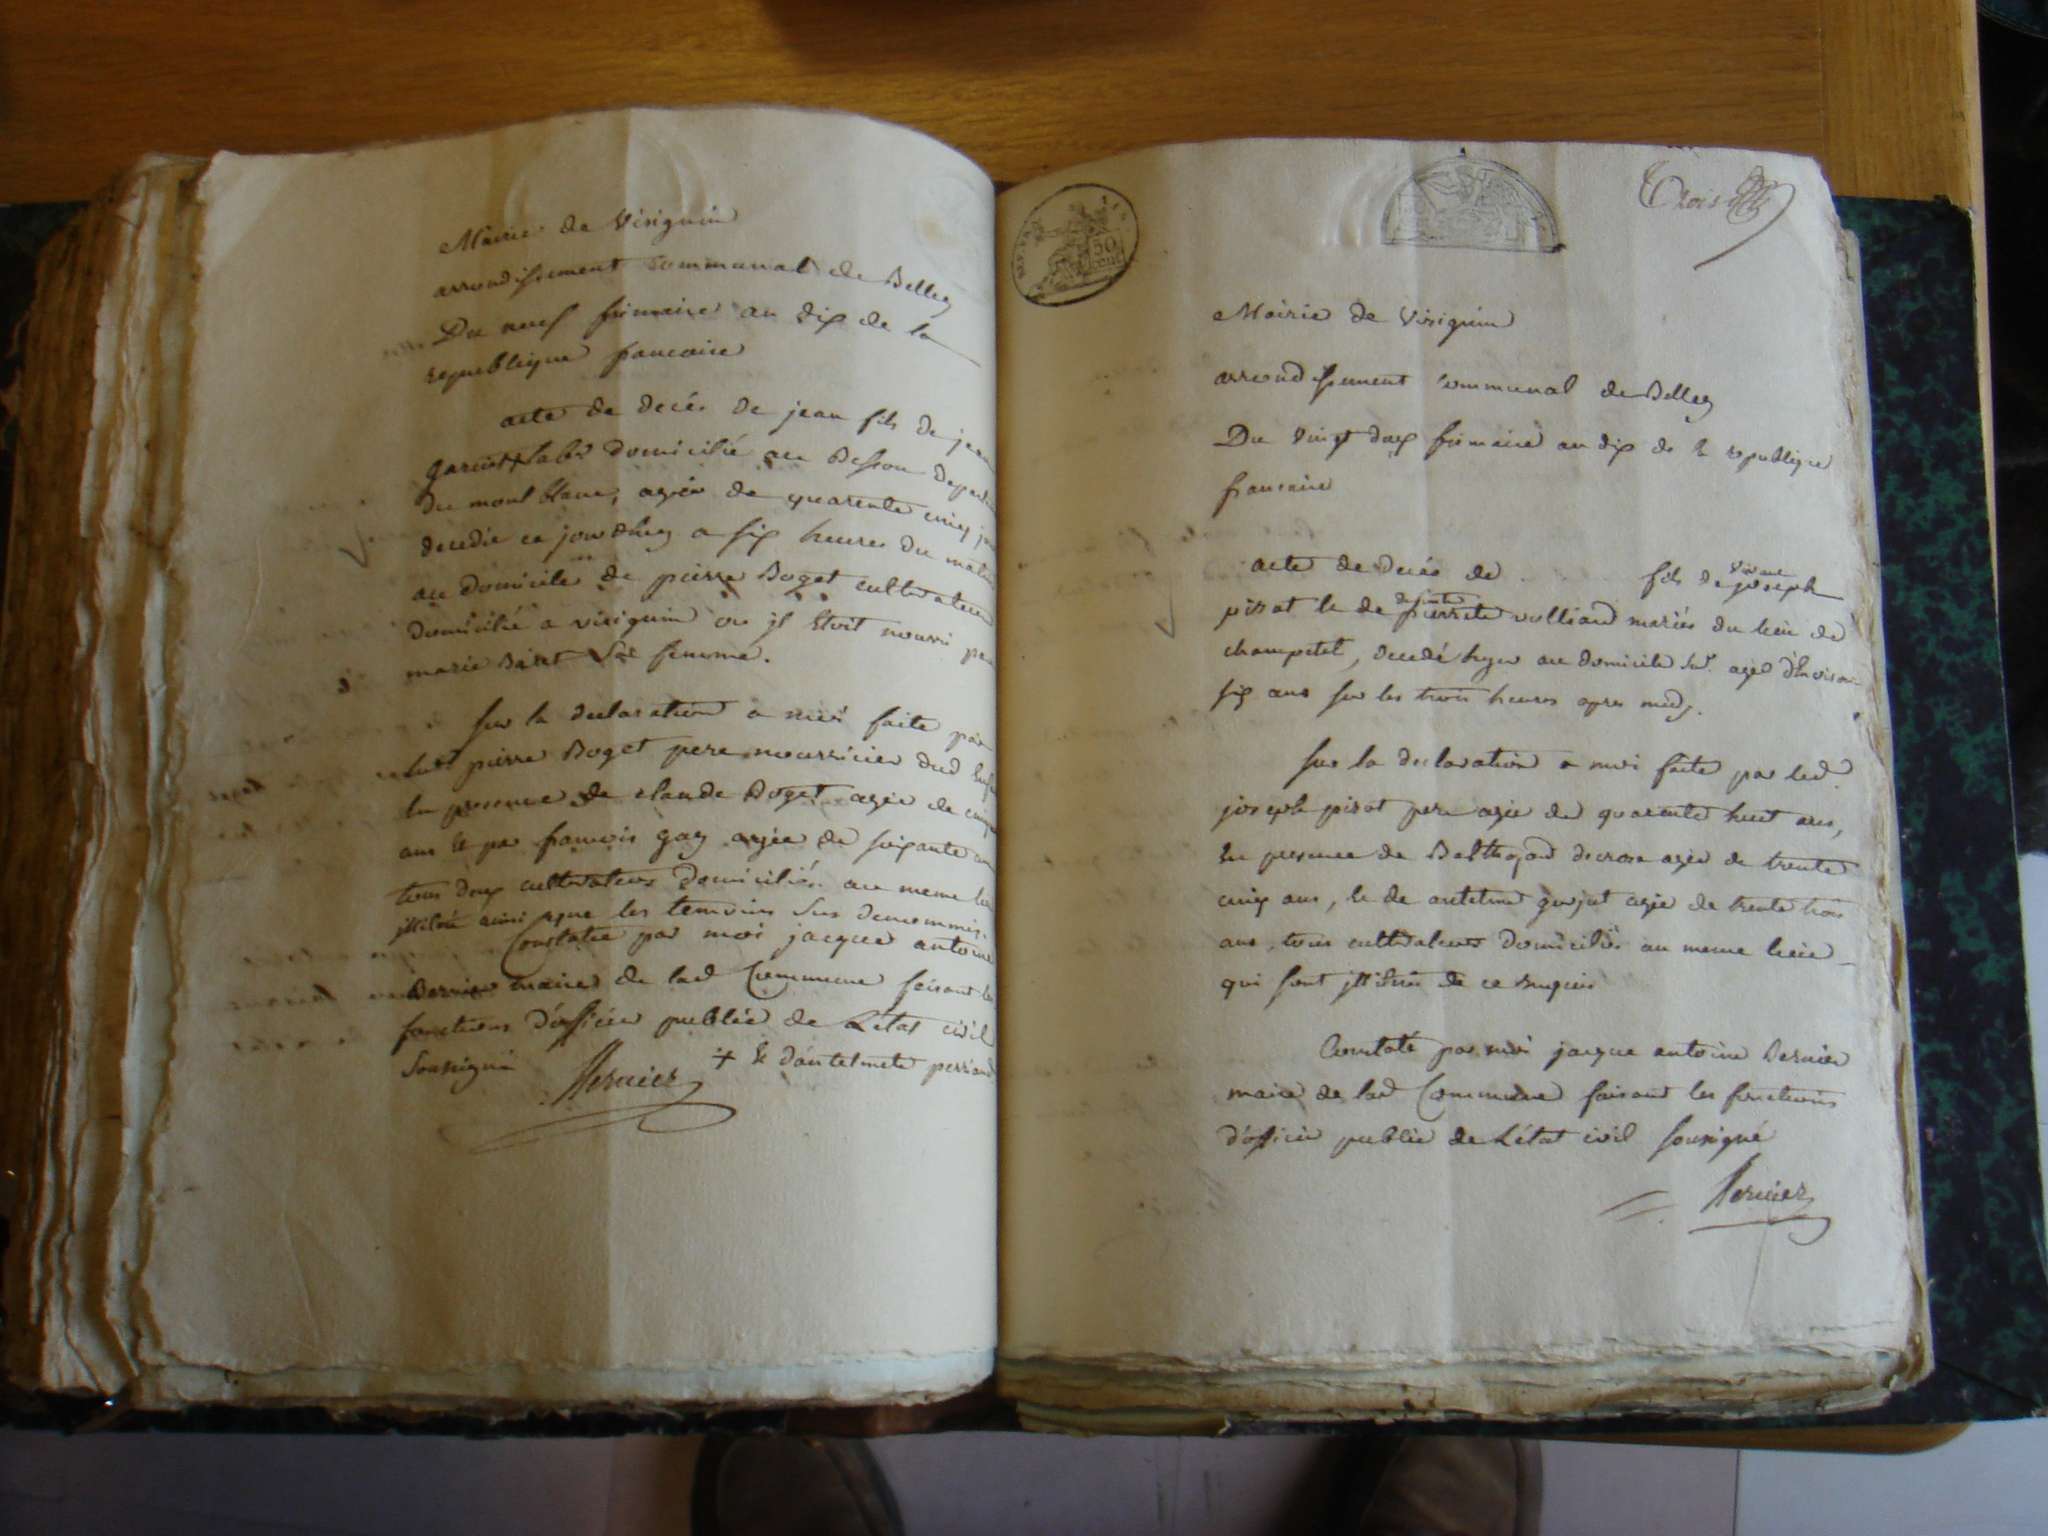 Mairie de Virignin
arrondissement communal de Belley
Du neuf frimaire an dix de la
republique francaise
acte de decés de jean fils de jean
domicilié au
du mont blanc, agée de quarente cinq
decedé ce jourdhuy a six heures du matin
au domicile de pierre Boget cultivateur
domicilié a virignin ou il etoit nourri par
marie sa femme.
sur la declaration a moi faite par
pierre Boget pere nourricier dud
En presence de claude Boget agée de
ans et par francois gay agée de soixante
tous deux cultivateurs domiciliés au meme
ainsi que les temoins sus denommés.
Constatée par moi jacque antoine
Bernier maire de lad Commune faisant les
fonctions d'officier public de L'état civil
Soussigné
Bernier
+ & d'antelmete perriand
50
cent
Trois
Mairie de Virignin
arrondissement communal de Belley
Du vingt deux frimaire an dix de la republique
francaise
acte de decés de fils de joseph
pirot & de defunte pierrete volliand mariés du lieu de
champetel, decedé hyer au domicile agé d'Environ
six ans sur les trois heures apres midy.
sur la declaration a moi faite par led.
joseph pirot pere agée de quarente huit ans,
En presence de Balthazard decroze agée de trente
cinq ans, & de antelme gojat agée de trente trois
ans, tous cultivateurs domiciliés au meme lieu
qui sont de ce
Constaté par moi jacque antoine Bernier
maire de lad Commune faisant les fonctions
d'officier public de L'état civil soussigné
Bernier